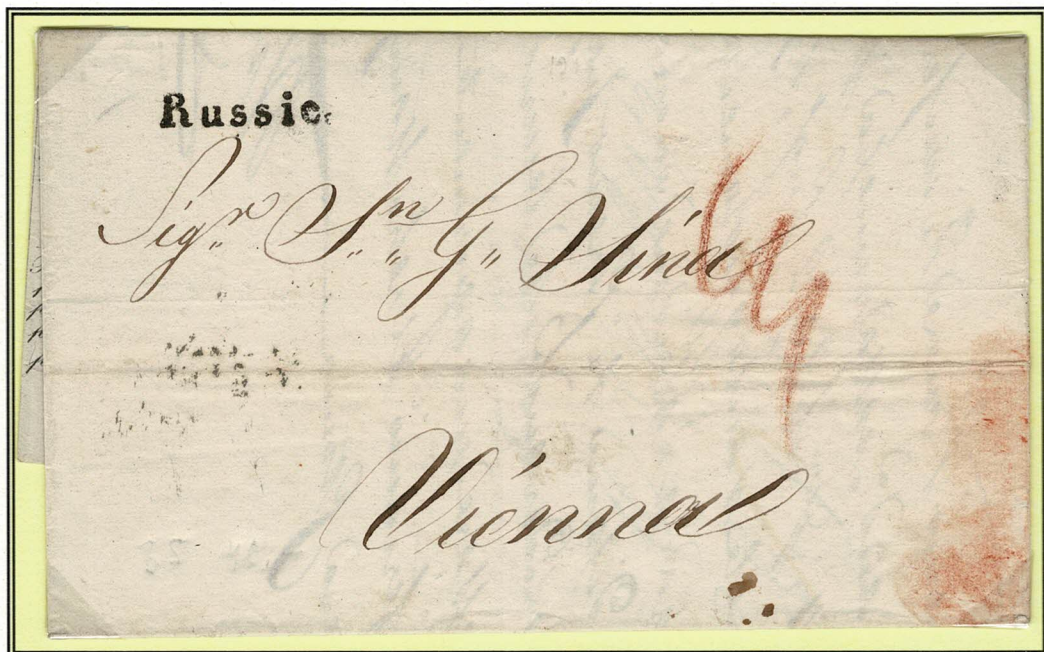 Russie.
Sig.r S.n G. Sina
Vienna